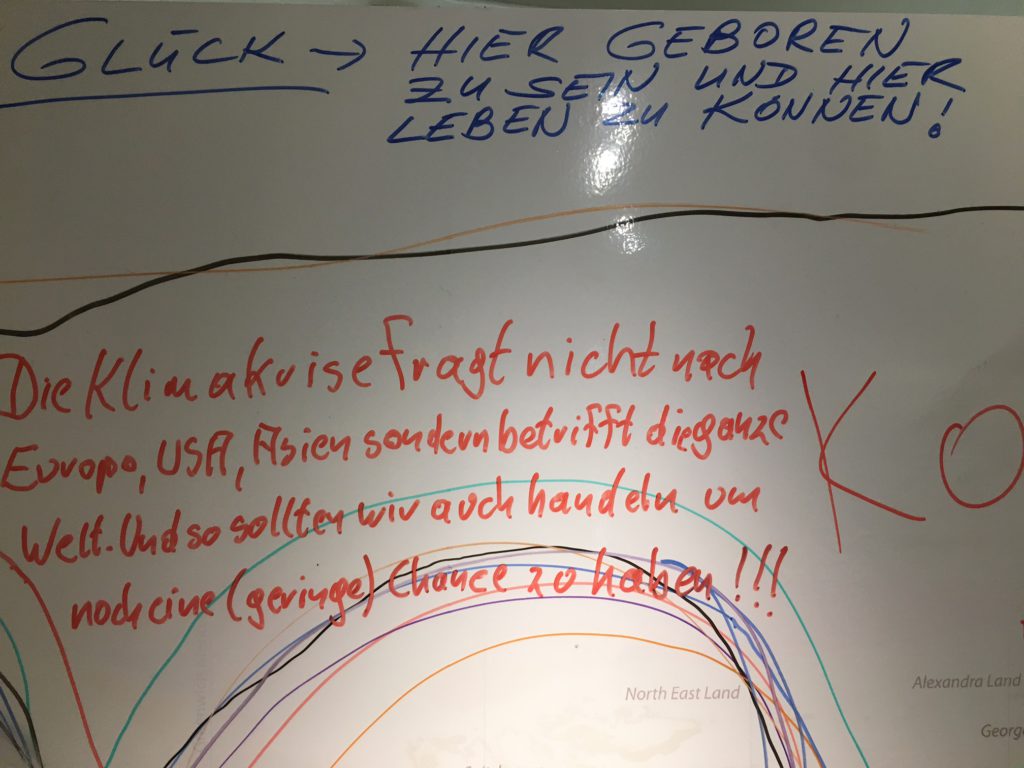 GLÜCK → HIER GEBOREN
ZU SEIN UND HIER
LEBEN ZU KÖNNEN!
Die Klimakrise fragt nicht nach
Europa, USA, Asien sondern betrifft die ganze
Welt. Und so sollten wir auch handeln um
noch eine (geringe) Chance zo haben!!!
KO
North East Land
Alexandra Land
George